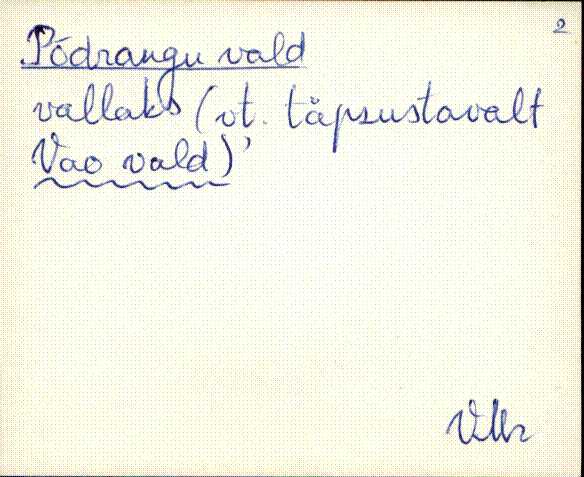 2
Põdrangu vald
vallaks (vt. täpsustavalt
Vao vald)